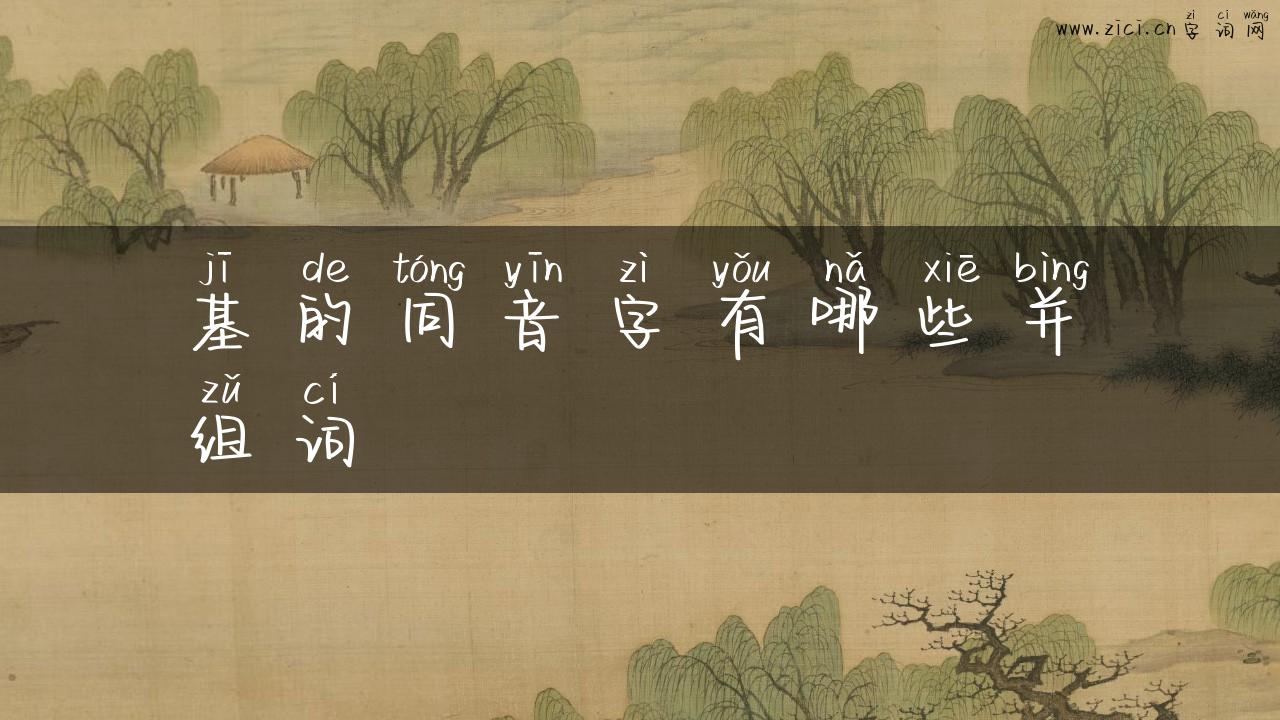 zì cí wǎng
www.zici.cn 字 词 网
jī de tóng yīn zì yǒu nǎ xiē bìng
基 的 同 音 字 有 哪 些 并
zǔ cí
组 词